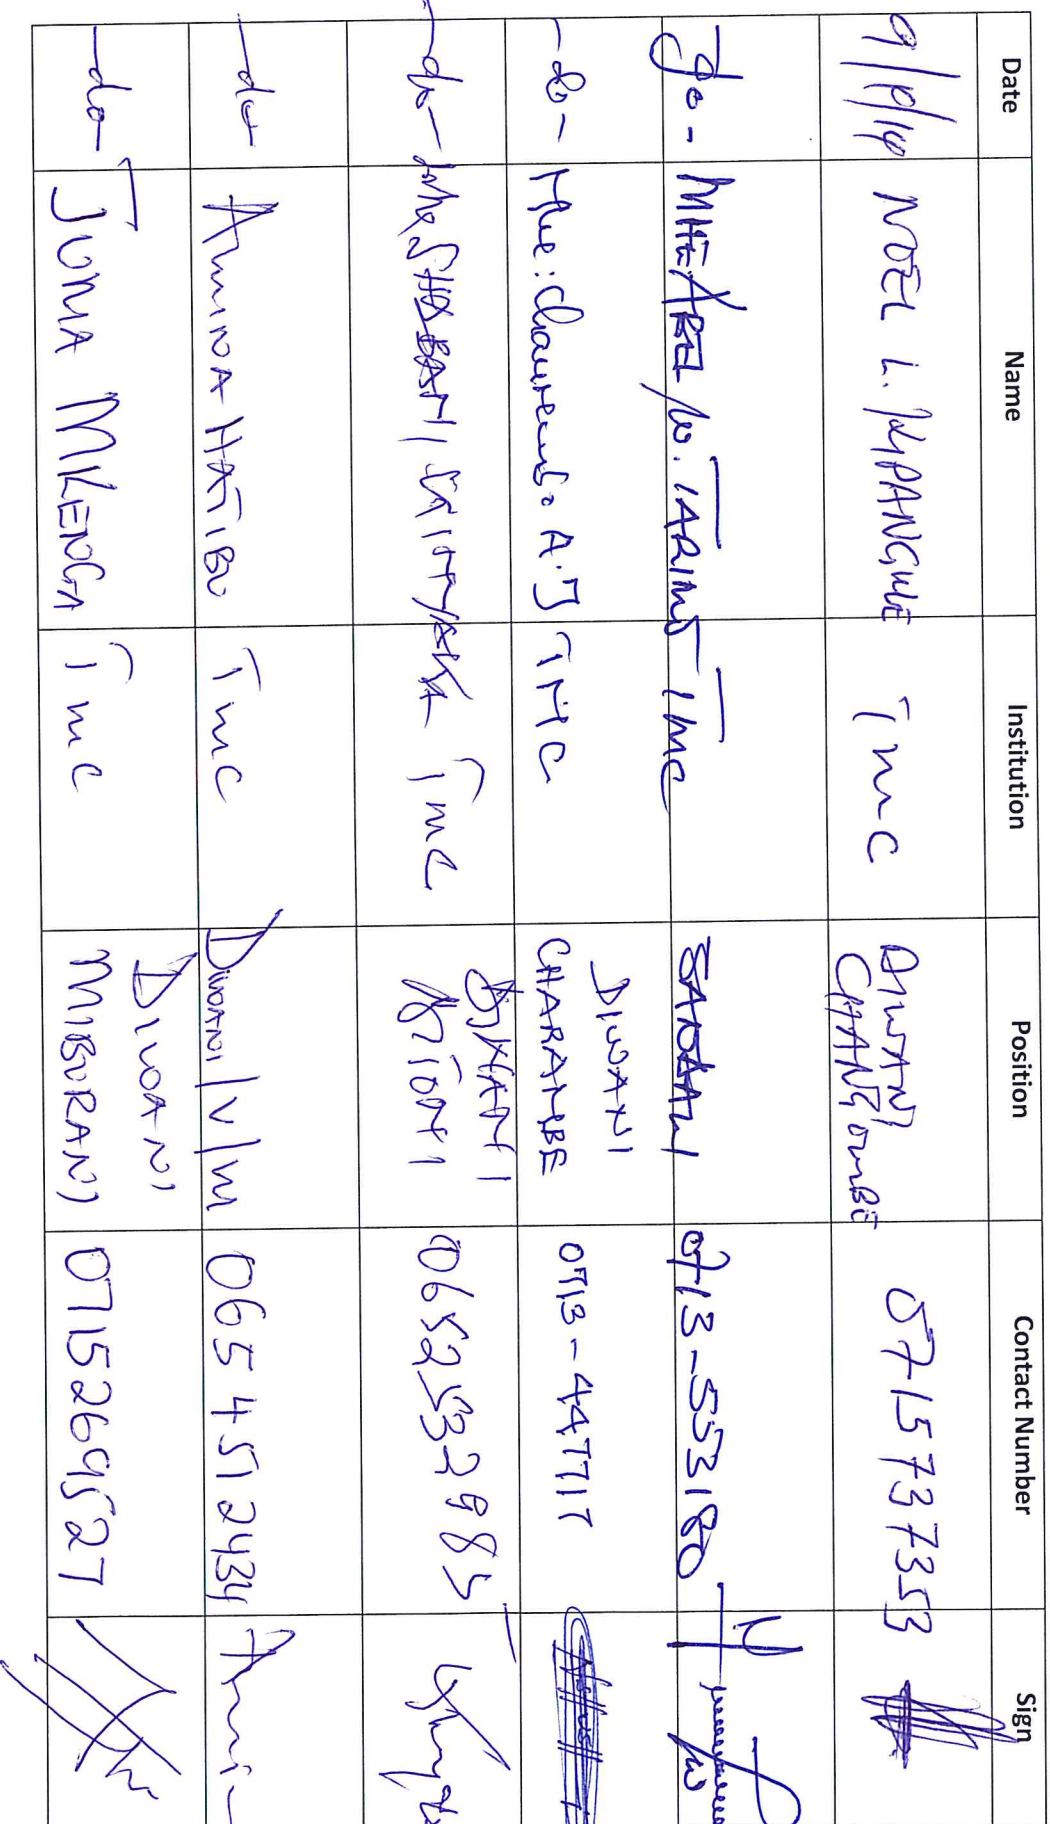 Date Name Institution Position Contact Number Sign
9/10/14 NOEL L. KIPANGULE TMC DIWANI CHANG'OMBE 0715737353
-do- MHE ABEL W. TARIMO TMC 0713-553180
-do- Mhe: A.J TMC DIWANI CHARAMBE 0713-447717
-do- Mhe SHABANI TMC 0652532985
-do- AMINA HATIBU TMC DIWANI V/M 0654512434 Ami-
-do- JUMA MKENGA TMC DIWANI MIBURANI 0715269527